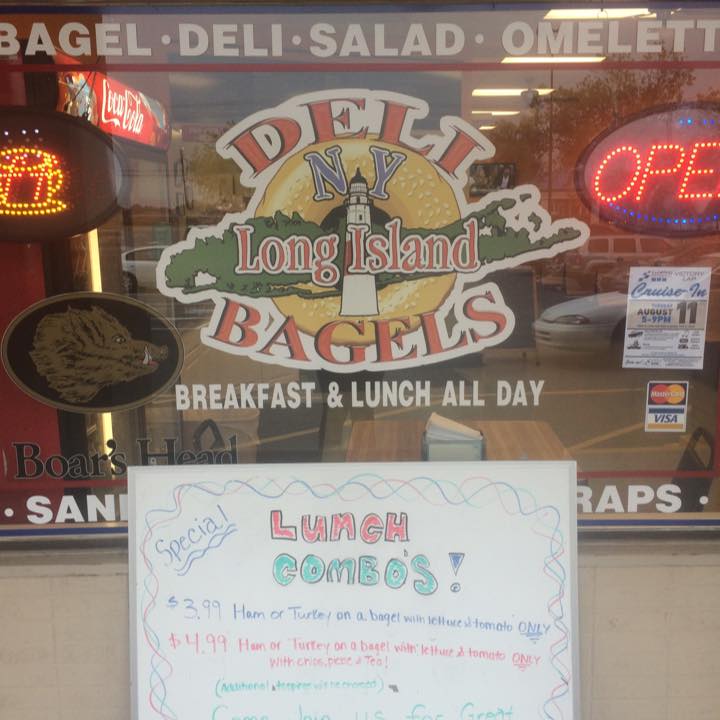 BAGEL · DELI · SALAD · OMELETT
Coca-Cola
DELI
NY
Long Island
BAGELS
OPE
Cruise-In
AUGUST 11
5-9PM
BREAKFAST & LUNCH ALL DAY
MasterCard
VISA
Boar's Head
· SAN
RAPS ·
Special!
LUNCH
COMBO'S!
$3.99 Ham or Turkey on a bagel with lettuce & tomato ONLY
$4.99 Ham or Turkey on a bagel with lettuce & tomato ONLY
With chips,
& Tea!
(Additional
Come Join us for Great